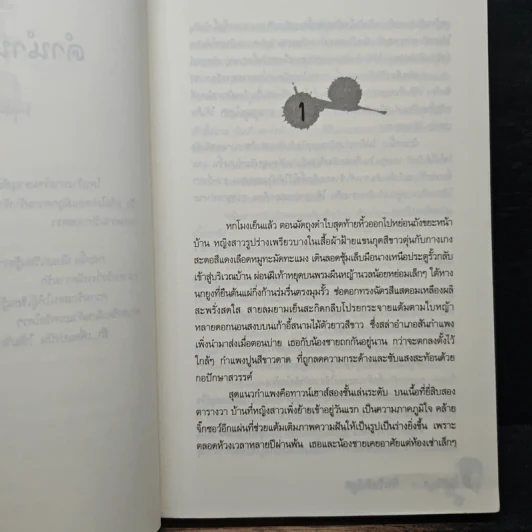 คำนำ
1
หกโมงเย็นแล้ว ตอนมัดถุงดำใบสุดท้ายหิ้วออกไปหย่อนถังขยะหน้า
บ้าน หญิงสาวรูปร่างเพรียวบางในเสื้อผ้าฝ้ายแขนกุดสีขาวตุ่นกับกางเกง
สะดอสีแดงเลือดหมูทะมัดทะแมง เดินลอดซุ้มเล็บมือนางเหนือประตูรั้วกลับ
เข้าสู่บริเวณบ้าน ผ่อนฝีเท้าหยุดบนพรมผืนหญ้านวลน้อยหย่อมเล็กๆ ใต้หาง
นกยูงที่ยืนต้นแผ่กิ่งก้านร่มรื่นตรงมุมรั้ว ช่อดอกทรงฉัตรสีแสดอมเหลืองผลิ
สะพรั่งสดใส สายลมยามเย็นสะกิดกลีบโปรยกระจายแต้มตามใบหญ้า
หลายดอกนอนสงบบนเก้าอี้สนามไม้ตัวยาวสีขาว ซึ่งสล่าอำเภอสันกำแพง
เพิ่งนำมาส่งเมื่อตอนบ่าย เธอกับน้องชายถกกันอยู่นาน กว่าจะตกลงตั้งไว้
ใกล้ๆ กำแพงปูนสีขาวตาด ที่ถูกลดความกระด้างและขับแสงสะท้อนด้วย
กอปักษาสวรรค์
สุดแนวกำแพงคือทาวน์เฮาส์สองชั้นเล่นระดับ บนเนื้อที่ยี่สิบสอง
ตารางวา บ้านที่หญิงสาวเพิ่งย้ายเข้าอยู่วันแรก เป็นความภาคภูมิใจ คล้าย
จิ๊กซอว์อีกแผ่นที่ช่วยแต้มเติมภาพความฝันให้เป็นรูปเป็นร่างยิ่งขึ้น เพราะ
ตลอดห้วงเวลาหลายปีผ่านพ้น เธอและน้องชายเคยอาศัยแต่ห้องเช่าเล็กๆ